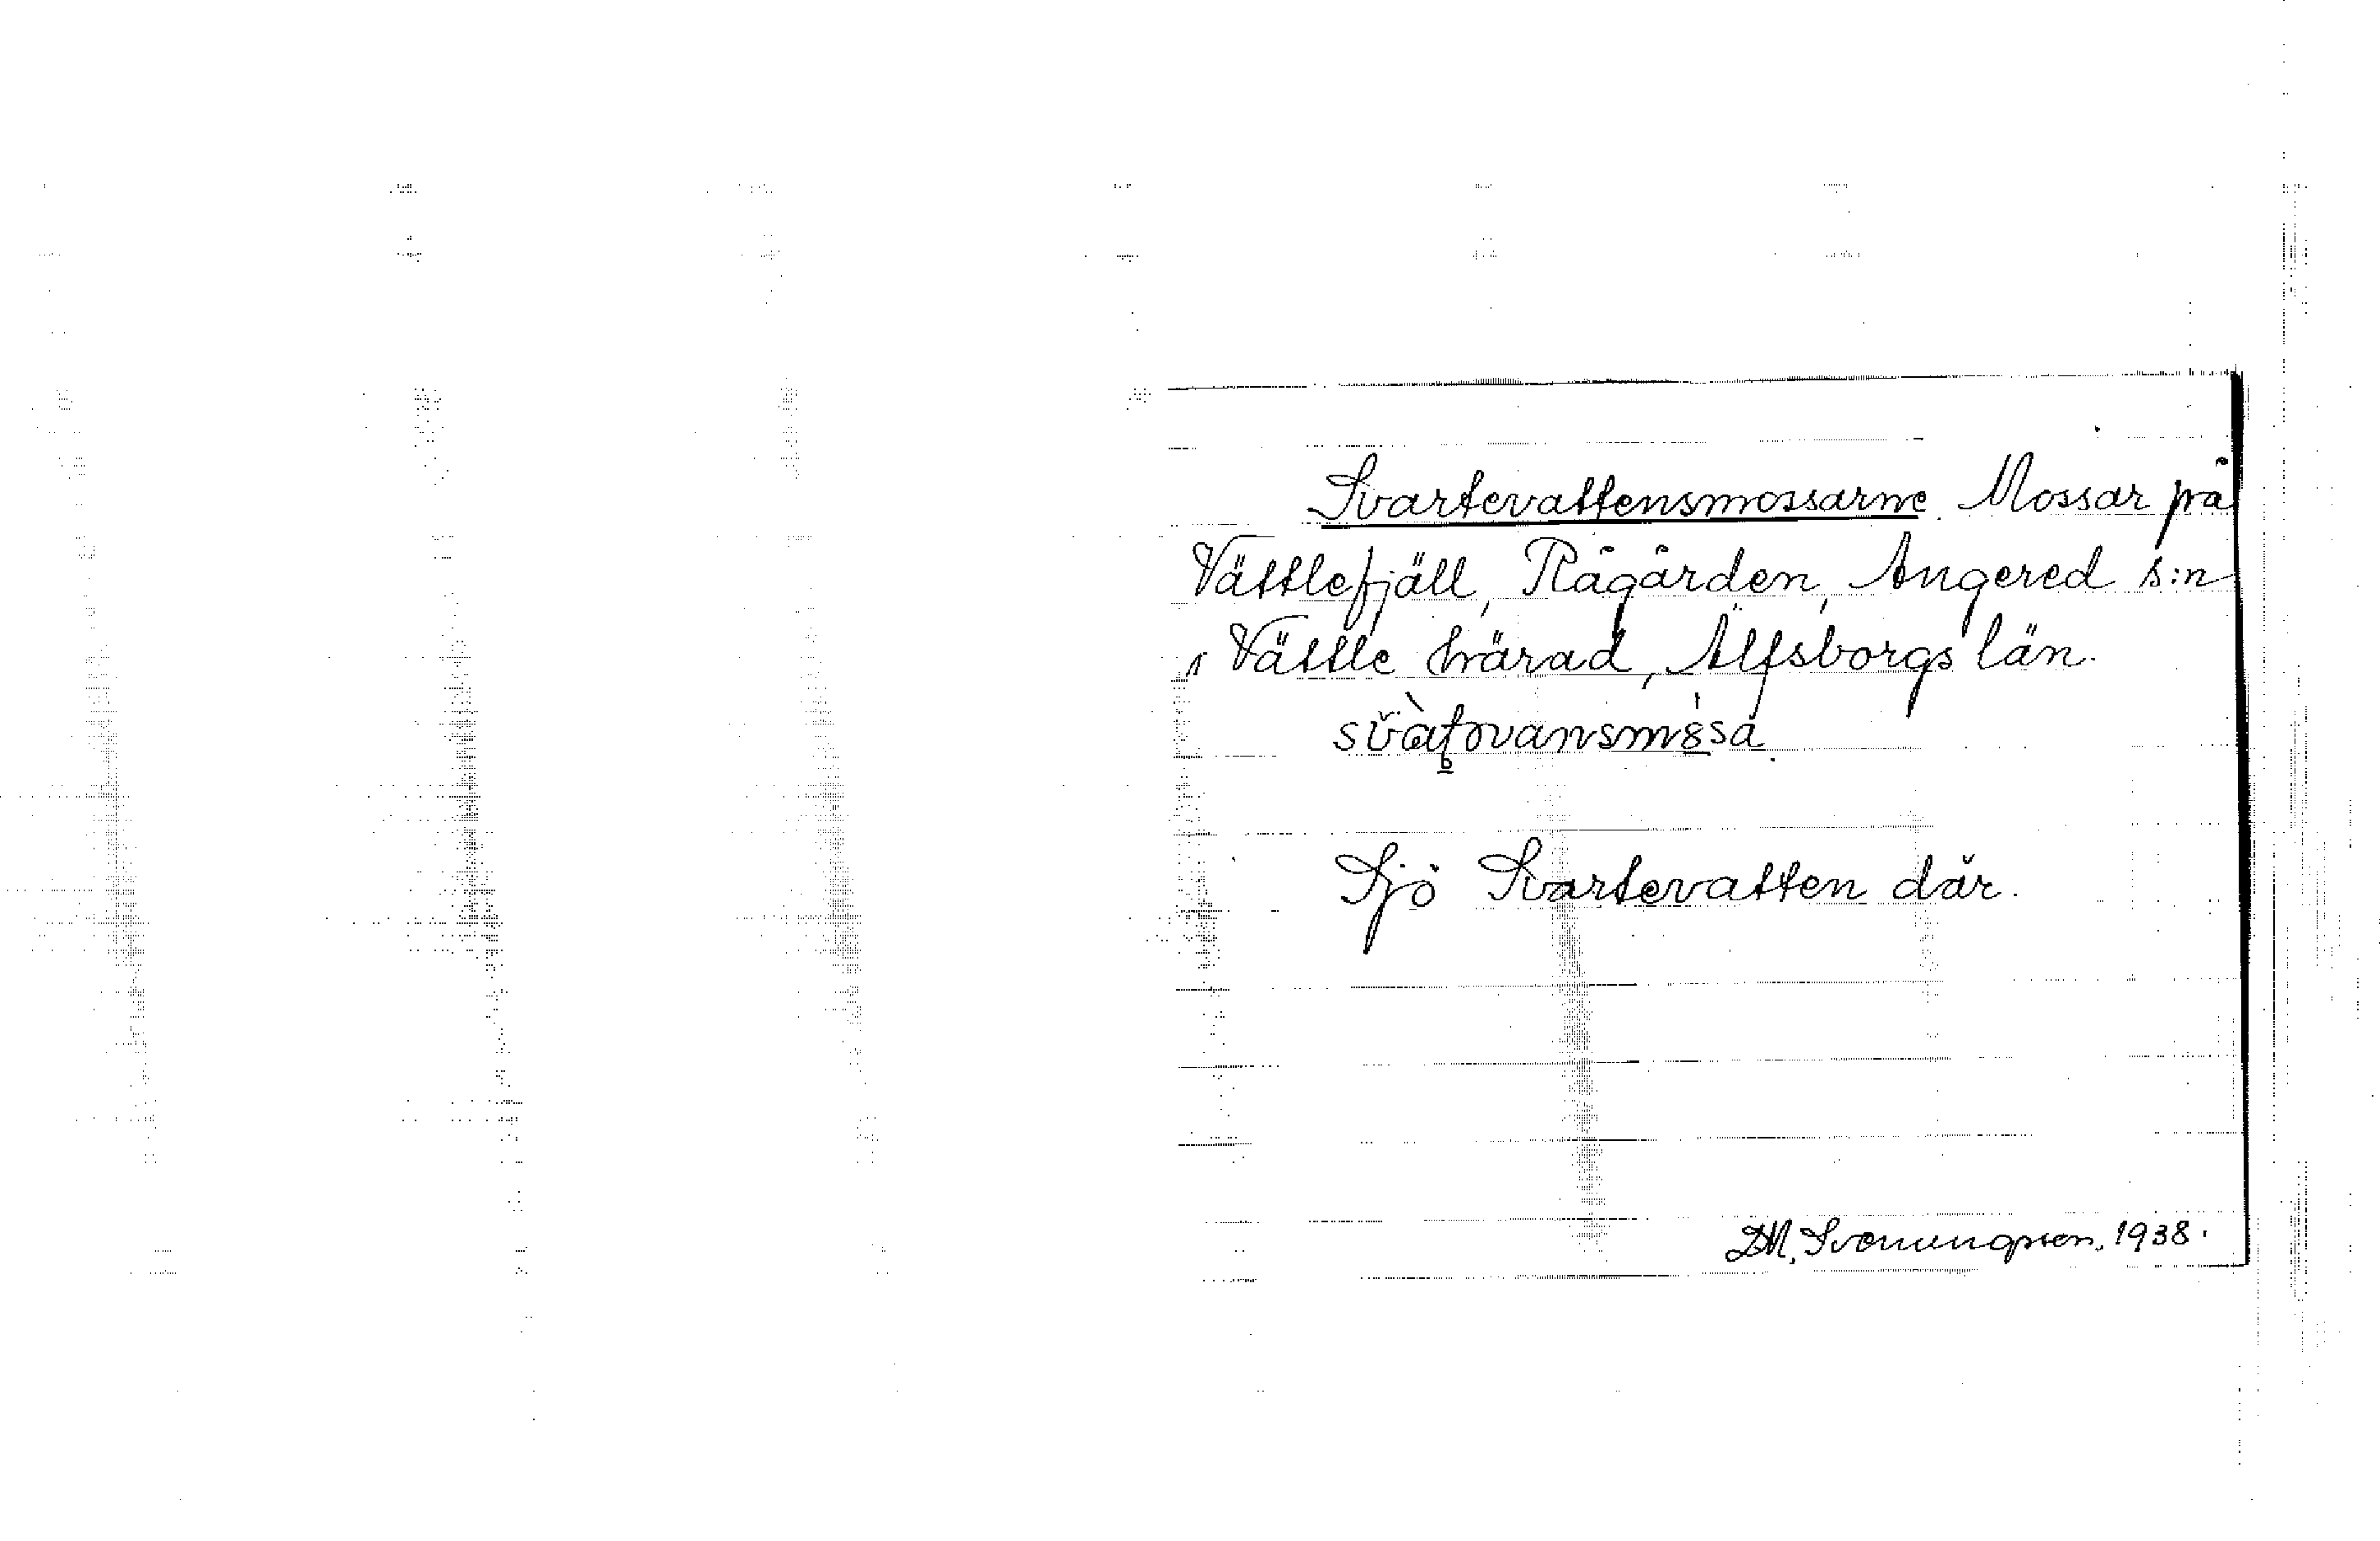 Svartevattensmossarne. Mossar på
Vättlefjäll, Rågården, Angered s:n
Vättle härad, Älfsborgs län.
Sjö Svartevatten där.
D.M. Svenungsson, 1938.